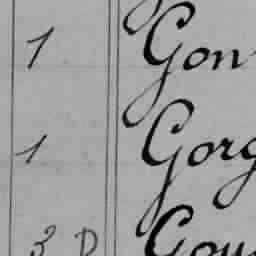 1 Gon
1 Gorg
3 D Gou